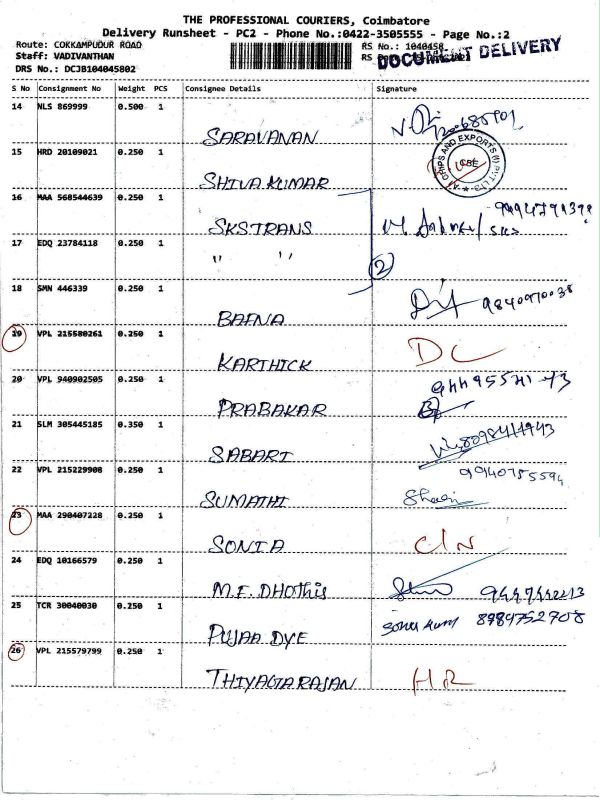 THE PROFESSIONAL COURIERS, Coimbatore
Delivery Runsheet - PC2 - Phone No.:0422-3505555 - Page No.:2
Route: COKKAMPUDUR ROAD
Staff: VADIVANTHAN
DRS No.: DCJB104045802
RS No.: 1040458
RS
DOCUMENT DELIVERY
S No Consignment No Weight PCS Consignee Details Signature
14 NLS 869999 0.500 1
SARAVANAN
15 HRD 20109021 0.250 1
SHIVA KUMAR
16 MAA 568544639 0.250 1
SKSTRANS
17 EDQ 23784118 0.250 1
" "
2
18 SMN 446339 0.250 1
BAFNA 9840970038
19 VPL 215580261 0.250 1
KARTHICK DC
20 VPL 940902505 0.250 1
PRABAKAR
21 SLM 305445185 0.350 1
SABARI
22 VPL 215229908 0.250 1
9940755594
SUMATHI
23 MAA 290407228 0.250 1
SONIA C/N
24 EDQ 10166579 0.250 1
M.F. DHOTHIS
25 TCR 30040030 0.250 1
PUJAA DYE 8989752908
26 VPL 215579799 0.250 1
THIYAGARAJAN HR